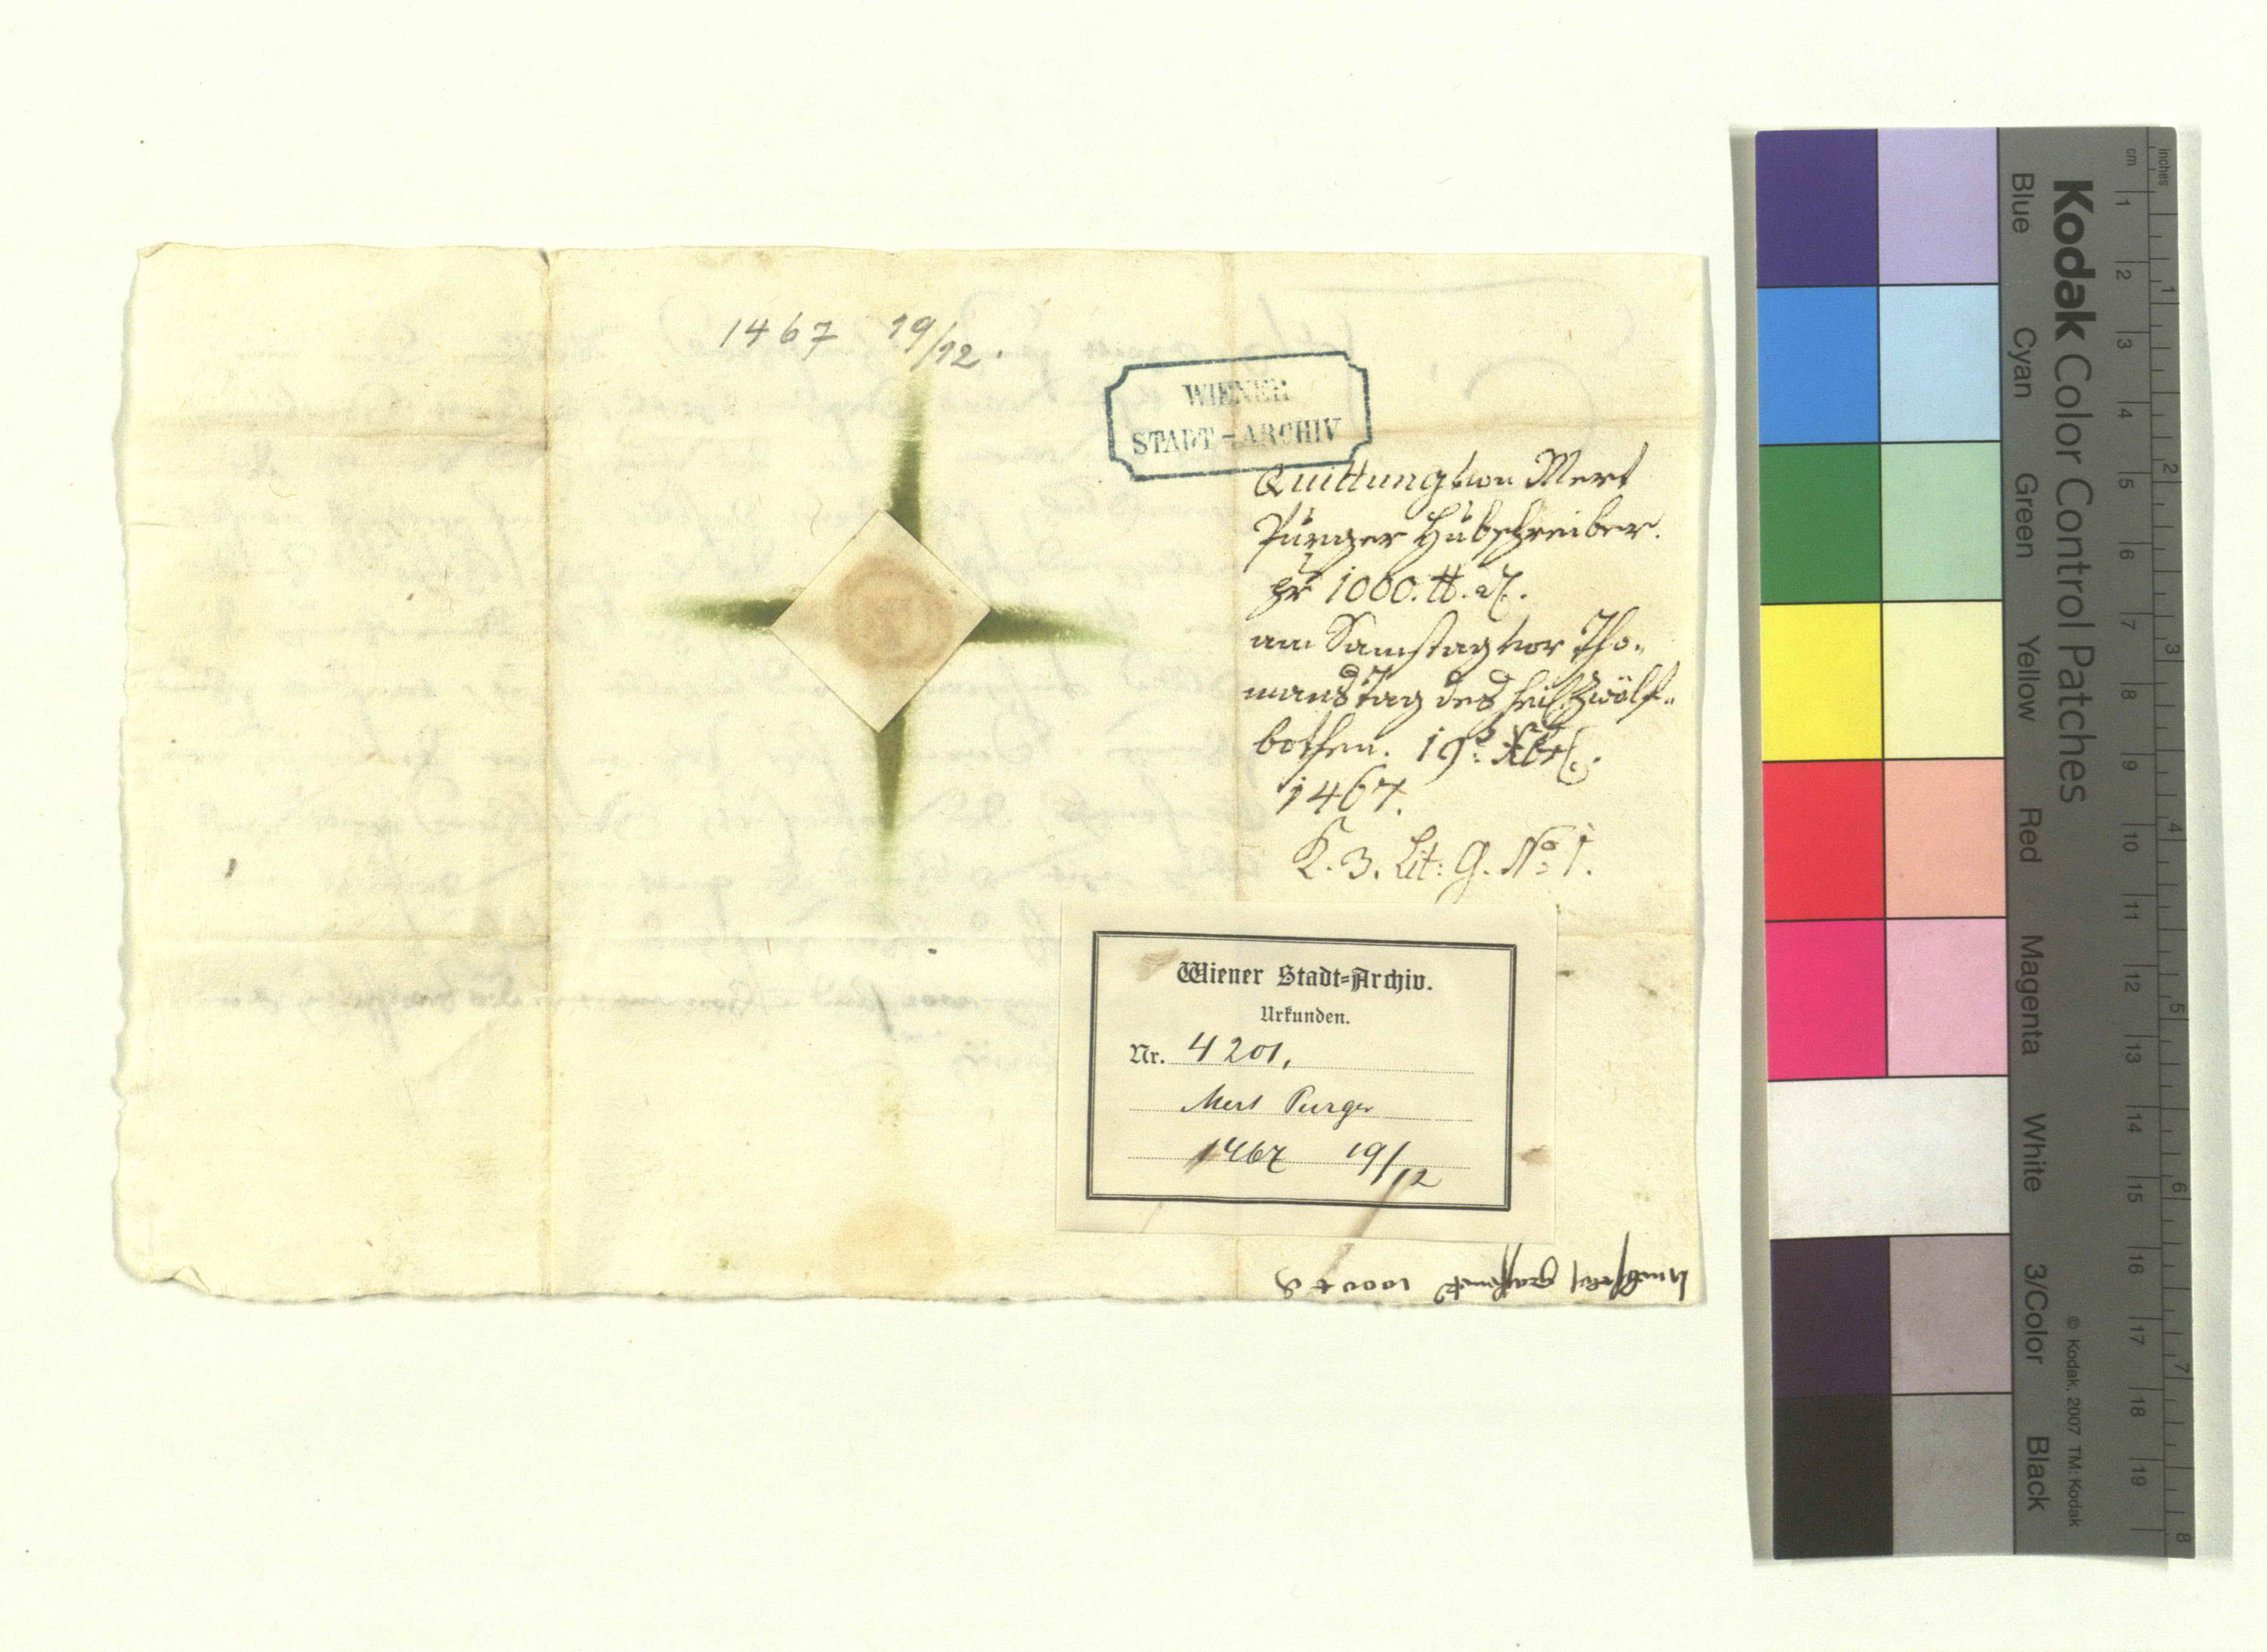 1467 19/12.
WIENER
STADT-ARCHIV
Quittung von Mert
Pürger Hubschreiber.
pr 1000. ℔. ₰.
am Samstag vor Tho-
manstag des heil. Zwölf-
bothen. 19: Xbr.
1467.
K. 3. Lit: G. No: 1.
Wiener Stadt=Archiv.
Urkunden.
Nr. 4201,
Mert Purger
1467 19/12
1000
Kodak Color Control Patches
Blue Cyan Green Yellow Red Magenta White 3/Color Black
© Kodak, 2007 TM: Kodak
inches 1 2 3 4 5 6 7 8
cm 1 2 3 4 5 6 7 8 9 10 11 12 13 14 15 16 17 18 19